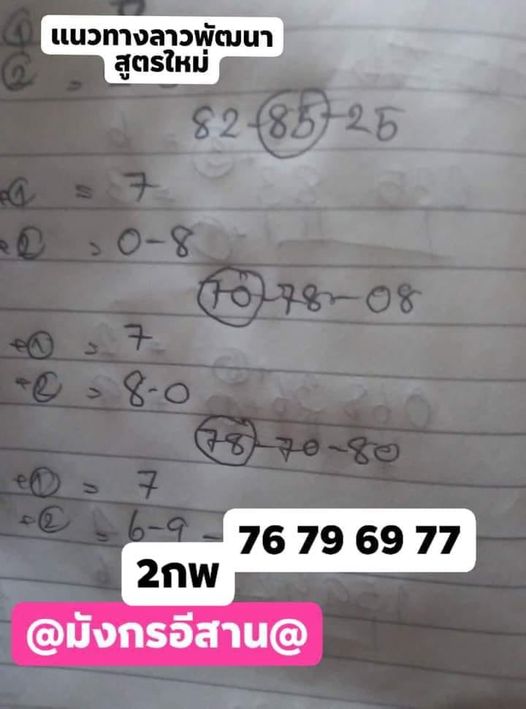 ①
แนวทางลาวพัฒนา
② = สูตรใหม่
82-85-25
① = 7
② = 0-8
70-78-08
① = 7
② = 8-0
78-70-80
① = 7
② = 6-9 - 76 79 69 77
2กพ
@มังกรอีสาน@